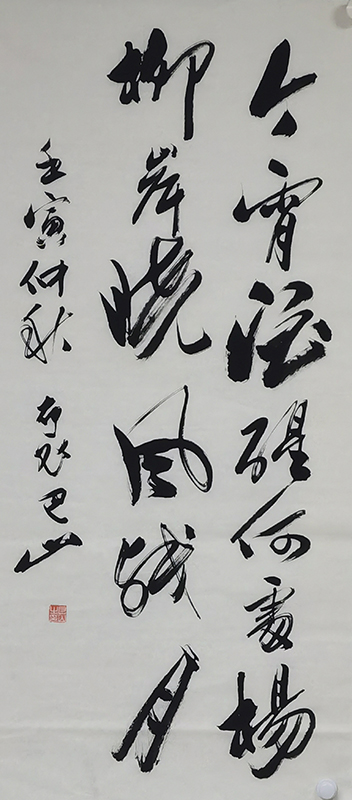 今宵酒醒何處楊
柳岸曉風殘月
壬寅仲秋 巴山